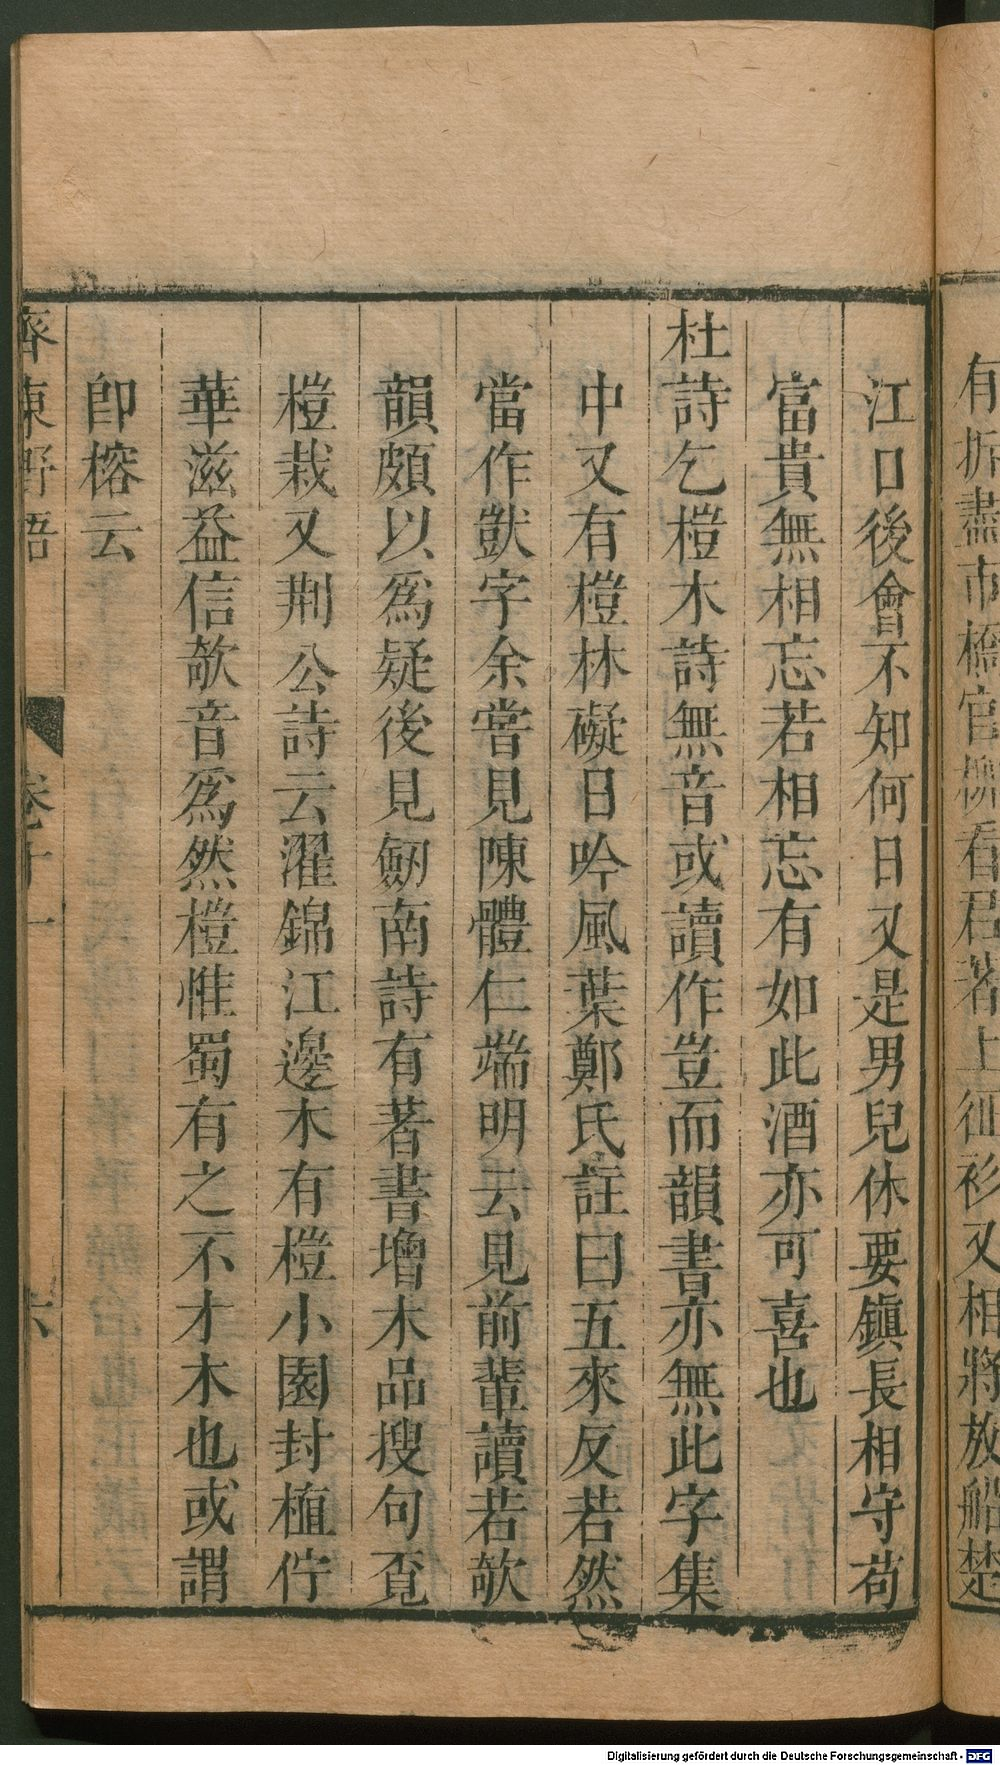 有拆盡市橋官柳看君著上征衫又相將放船楚
江口後會不知何日又是男兒休要鎮長相守苟
富貴無相忘若相忘有如此酒亦可喜也
杜詩乞榿木詩無音或讀作豈而韻書亦無此字集
中又有榿林礙日吟風葉鄭氏註曰五來反若然
當作獃字余嘗見陳體仁端明云見前輩讀若欹
韻頗以爲疑後見劒南詩有著書增木品搜句覔
榿栽又荆公詩云濯錦江邊木有榿小園封植佇
華滋益信欹音爲然榿惟蜀有之不才木也或謂
卽榕云
齊東野語 卷十一 六
Digitalisierung gefördert durch die Deutsche Forschungsgemeinschaft - DFG